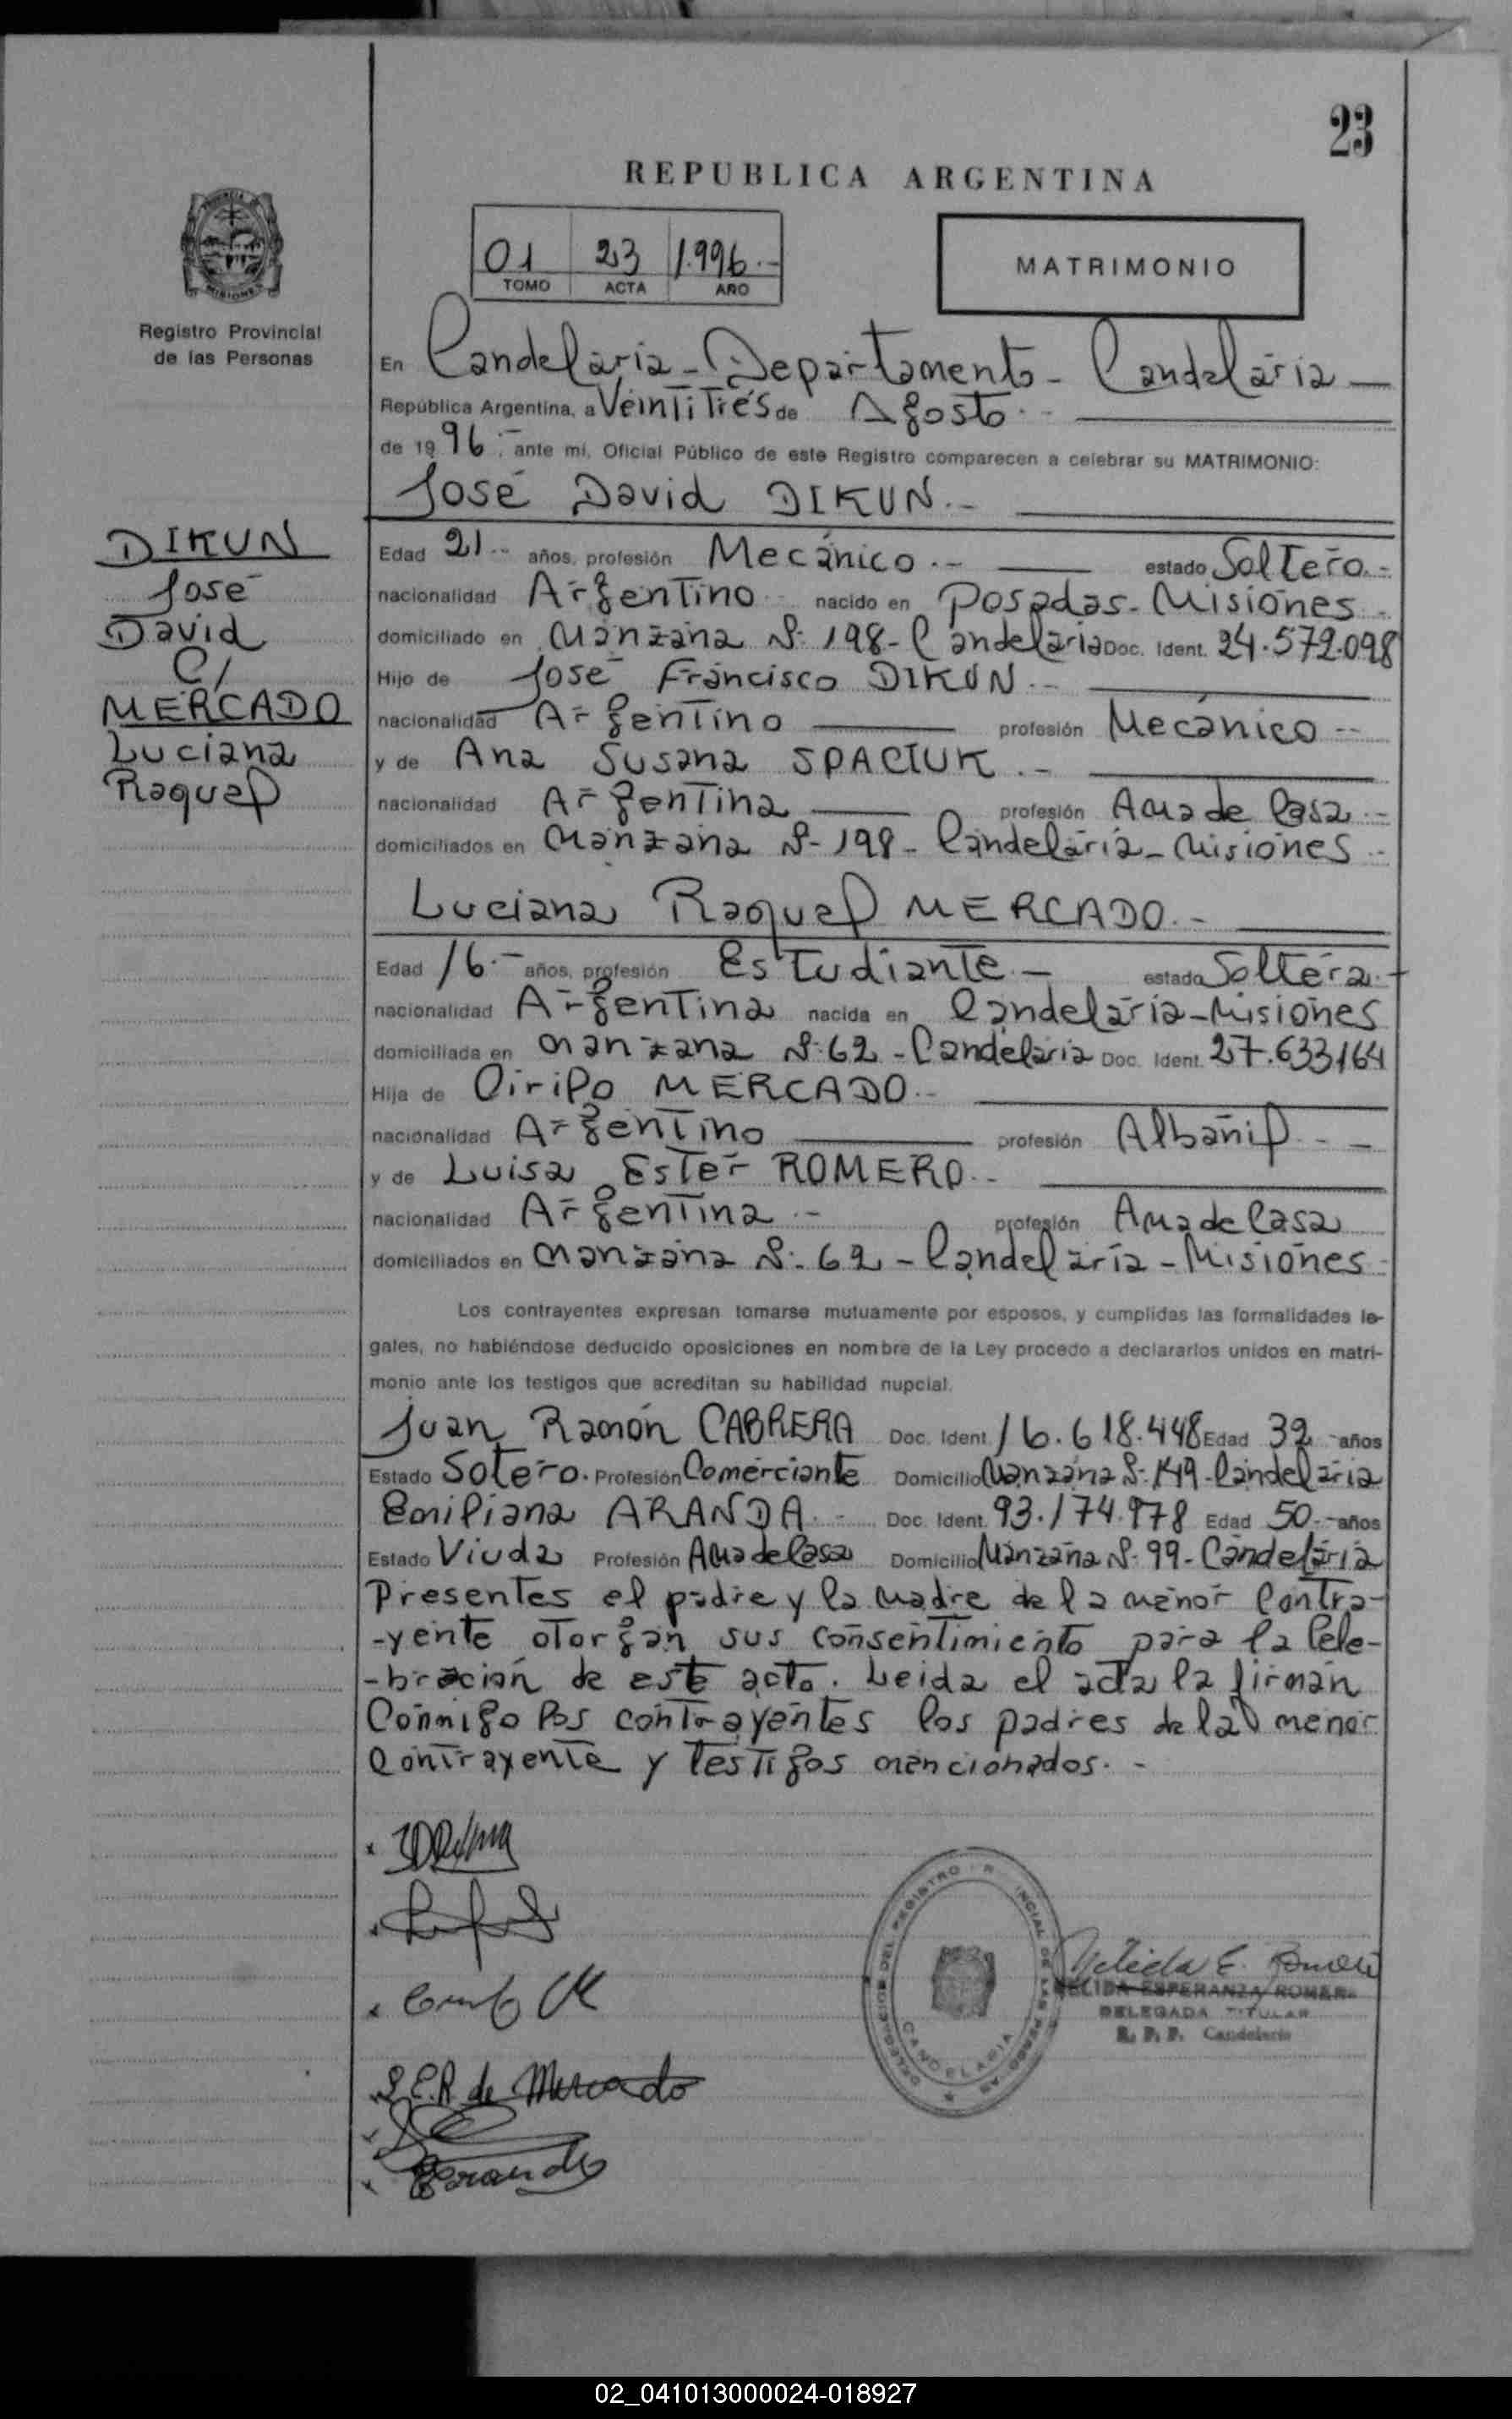 23
REPUBLICA ARGENTINA
01 23 1.996.-
TOMO ACTA AÑO
MATRIMONIO
Registro Provincial
de las Personas
En Candelaria - Departamento - Candelaria
República Argentina, a Veintitrés de Agosto.-
de 19 96.- ante mí, Oficial Público de este Registro comparecen a celebrar su MATRIMONIO:
José David DIKUN.-
DIKUN
José
David
C/
MERCADO
Luciana
Raquel
Edad 21.- años, profesión Mecánico.- estado Soltero.-
nacionalidad Argentino nacido en Posadas - Misiones.-
domiciliado en Manzana Nº 198 - Candelaria Doc. Ident. 24.572.098
Hijo de José Francisco DIKUN.-
nacionalidad Argentino profesión Mecánico.-
y de Ana Susana SPACIUK.-
nacionalidad Argentina profesión Ama de Casa.-
domiciliados en Manzana Nº 198 - Candelaria - Misiones.-
Luciana Raquel MERCADO.-
Edad 16.- años, profesión Estudiante.- estado Soltera.-
nacionalidad Argentina nacida en Candelaria - Misiones
domiciliada en Manzana Nº 62 - Candelaria Doc. Ident. 27.633.164
Hija de Cirilo MERCADO.-
nacionalidad Argentino profesión Albañil.-
y de Luisa Ester ROMERO.-
nacionalidad Argentina.- profesión Ama de Casa
domiciliados en Manzana Nº 62 - Candelaria - Misiones.-
Los contrayentes expresan tomarse mutuamente por esposos, y cumplidas las formalidades le-
gales, no habiéndose deducido oposiciones en nombre de la Ley procedo a declararlos unidos en matri-
monio ante los testigos que acreditan su habilidad nupcial.
Juan Ramón CABRERA Doc. Ident. 16.618.448 Edad 32.- años
Estado Sotero. Profesión Comerciante Domicilio Manzana Nº 149 - Candelaria
Emiliana ARANDA.- Doc. Ident. 93.174.978 Edad 50.- años
Estado Viuda Profesión Ama de Casa Domicilio Manzana Nº 99 - Candelaria
Presentes el padre y la madre de la menor Contra-
-yente otorgan sus consentimiento para la Cele-
-bración de este acto. Leida el acta la firman
Conmigo los contrayentes los padres de la menor
Contrayente y testigos mencionados.-
L.E.R de Mercado
DELEGACION DEL REGISTRO PROVINCIAL DE LAS PERSONAS
CANDELARIA
Nelida E. Romero
NELIDA ESPERANZA ROMERO
DELEGADA TITULAR
R. P. P. Candelaria
02_041013000024-018927